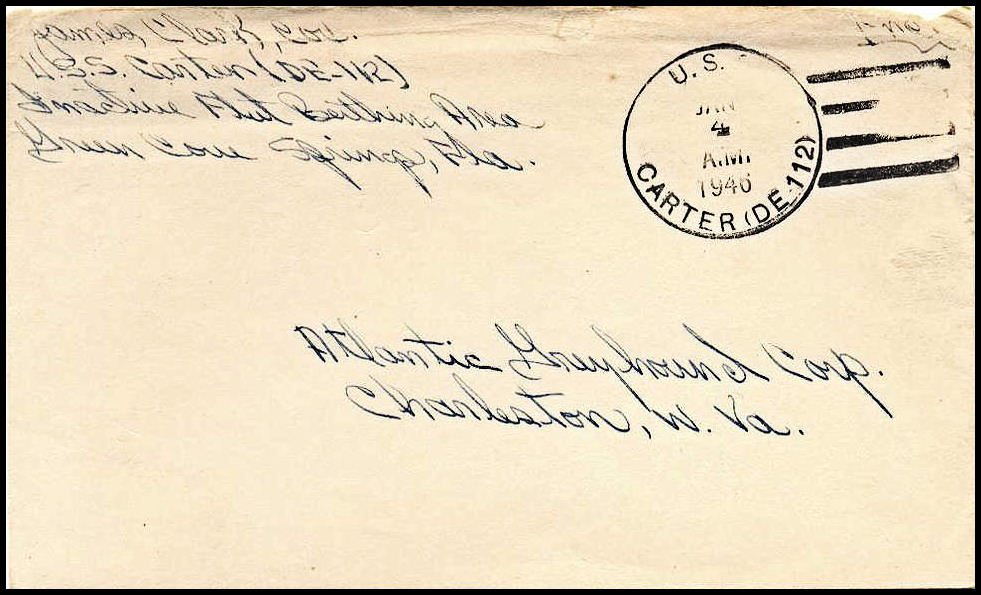 James Clark, Cox.
U.S.S. Carter (DE-112)
Inactive Fleet Berthing Area
Green Cove Springs, Fla.
Free
U.S.
JAN
4
A.M.
1946
CARTER (DE-112)
Atlantic Greyhound Corp.
Charleston, W. Va.